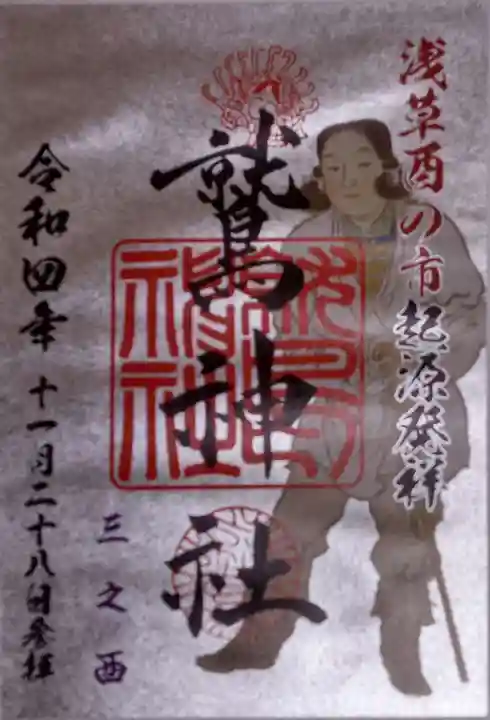 浅草酉の市起源発祥
鷲神社
三之酉
令和四年十一月二十八日参拝